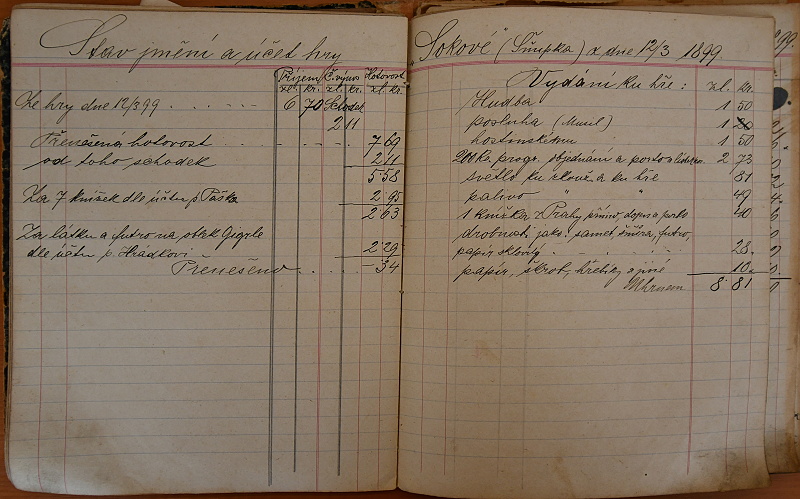 Stav jmění a účet hry
Příjem Č. výnos Hotovost
zl. kr. zl. kr. zl. kr.
Ze hry dne 12/3 99 . . . . . 6 70 Schodek
2 11
Přenešená hotovost . . . . . 7 69
od toho schodek 2 11
5 58
Za 7 knížek dle účtu p. Paška 2 95
2 63
Za látku a futro na oblek Gigrle
dle účtu p. Hrádkovi 2 29
Přenešeno . . . . . 34
"Sokové" (Šmupka) z dne 12/3 1899
Vydání ku hře: zl. kr.
Hudba 1 50
posluha (Musil) 1 20
hostinskému 1 50
200 ks. progr. objednání a porto 2 73
světlo ku zkouš. a ku hře 81
palivo " " 49
1 knížka z Prahy 40
drobnosti, jako: samet, šňůra, futro,
papír sklový . . . . . 28
papír, škrob, hřebíky a jiné 10
Úhrnem 8 81